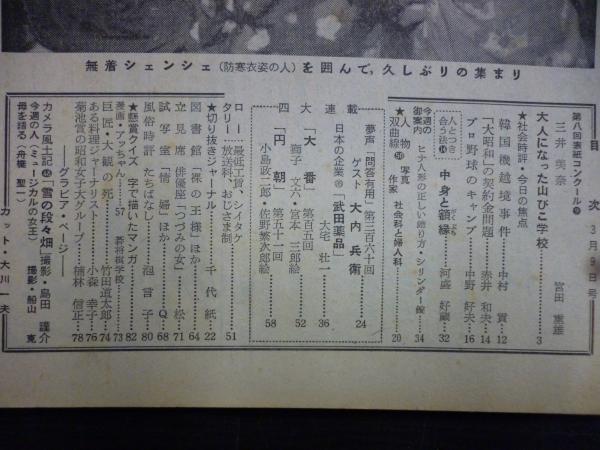 無着シェンシェ(防寒衣姿の人)を囲んで,久しぶりの集まり
目次 3月9日号
第八回表紙コンクール⑲
三井美奈 宮田重雄
大人になった山びこ学校……3
★社会時評・今日の焦点
韓国機越境事件……中村貢 12
「大昭和」の契約金問題……赤井和夫 14
プロ野球のキャンプ……中野好夫 16
人とつき合う法⑭ 中身と額縁……河盛好蔵 32
今週の御案内 ヒナ人形の正しい飾り方・シリンダー錠……34
★双曲線 人物 写真作家 社会科と婦人科……20
四大連載
夢声「問答有用」第三百六十回
ゲスト 大内兵衛……24
日本の企業⑳「武田薬品」 大宅壮一……36
「大番」第百五回
獅子文六・宮本三郎絵……52
「円朝」第五十一回
小島政二郎・佐野繁次郎絵……58
ロータリー 最低工賃、シイタケ 放送料、おじさま制……51
★切り抜きジャーナル……千代紙 22
図書館「裸の王様」ほか……64
立見席 俳優座「つづみの女」……松 71
試写室「情婦」ほか……Q 68
風俗時評 たちばなし……泡言子 80
★懸賞クイズ 字で描いたマンガ……82
漫画・アッちゃん……57 碁将棋学校……73
巨匠・大観の死……竹田道太郎 74
ある料理ジャーナリスト……小森幸子 76
菊池賞の昭和女子大グループ……楠林信正 78
―グラビア・ページ―
カメラ風土記㊽「雪の段々畑」撮影・島田謹介
今週の人(ミュージカルの女王) 撮影・船山克
母を語る(舟橋聖一)
カット・大川一夫